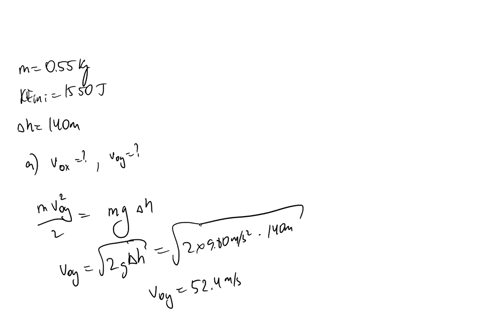 m=0.55kg
KEini=1550J
Δh=140m
a) v0x=?, v0y=?
mv0y²/2 = mgΔh
v0y=√2gΔh = √2×9.80m/s²·140m
v0y=52.4m/s